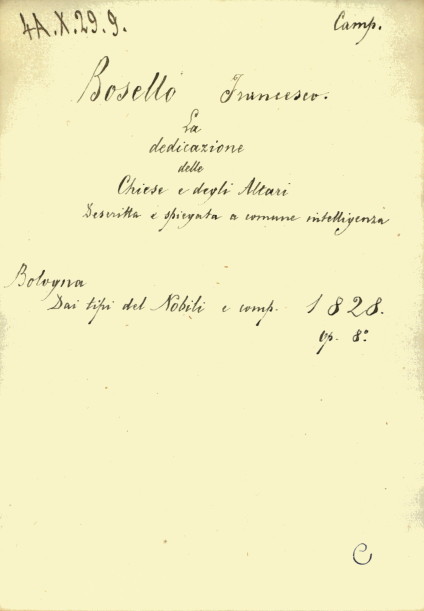 4A.X.29.9.
Camp.
Bosello Francesco.
La
dedicazione
delle
Chiese e degli Altari
Descritta e spiegata a comune intelligenza
Bologna
Dai tipi del Nobili e comp. 1828.
op. 8º
C